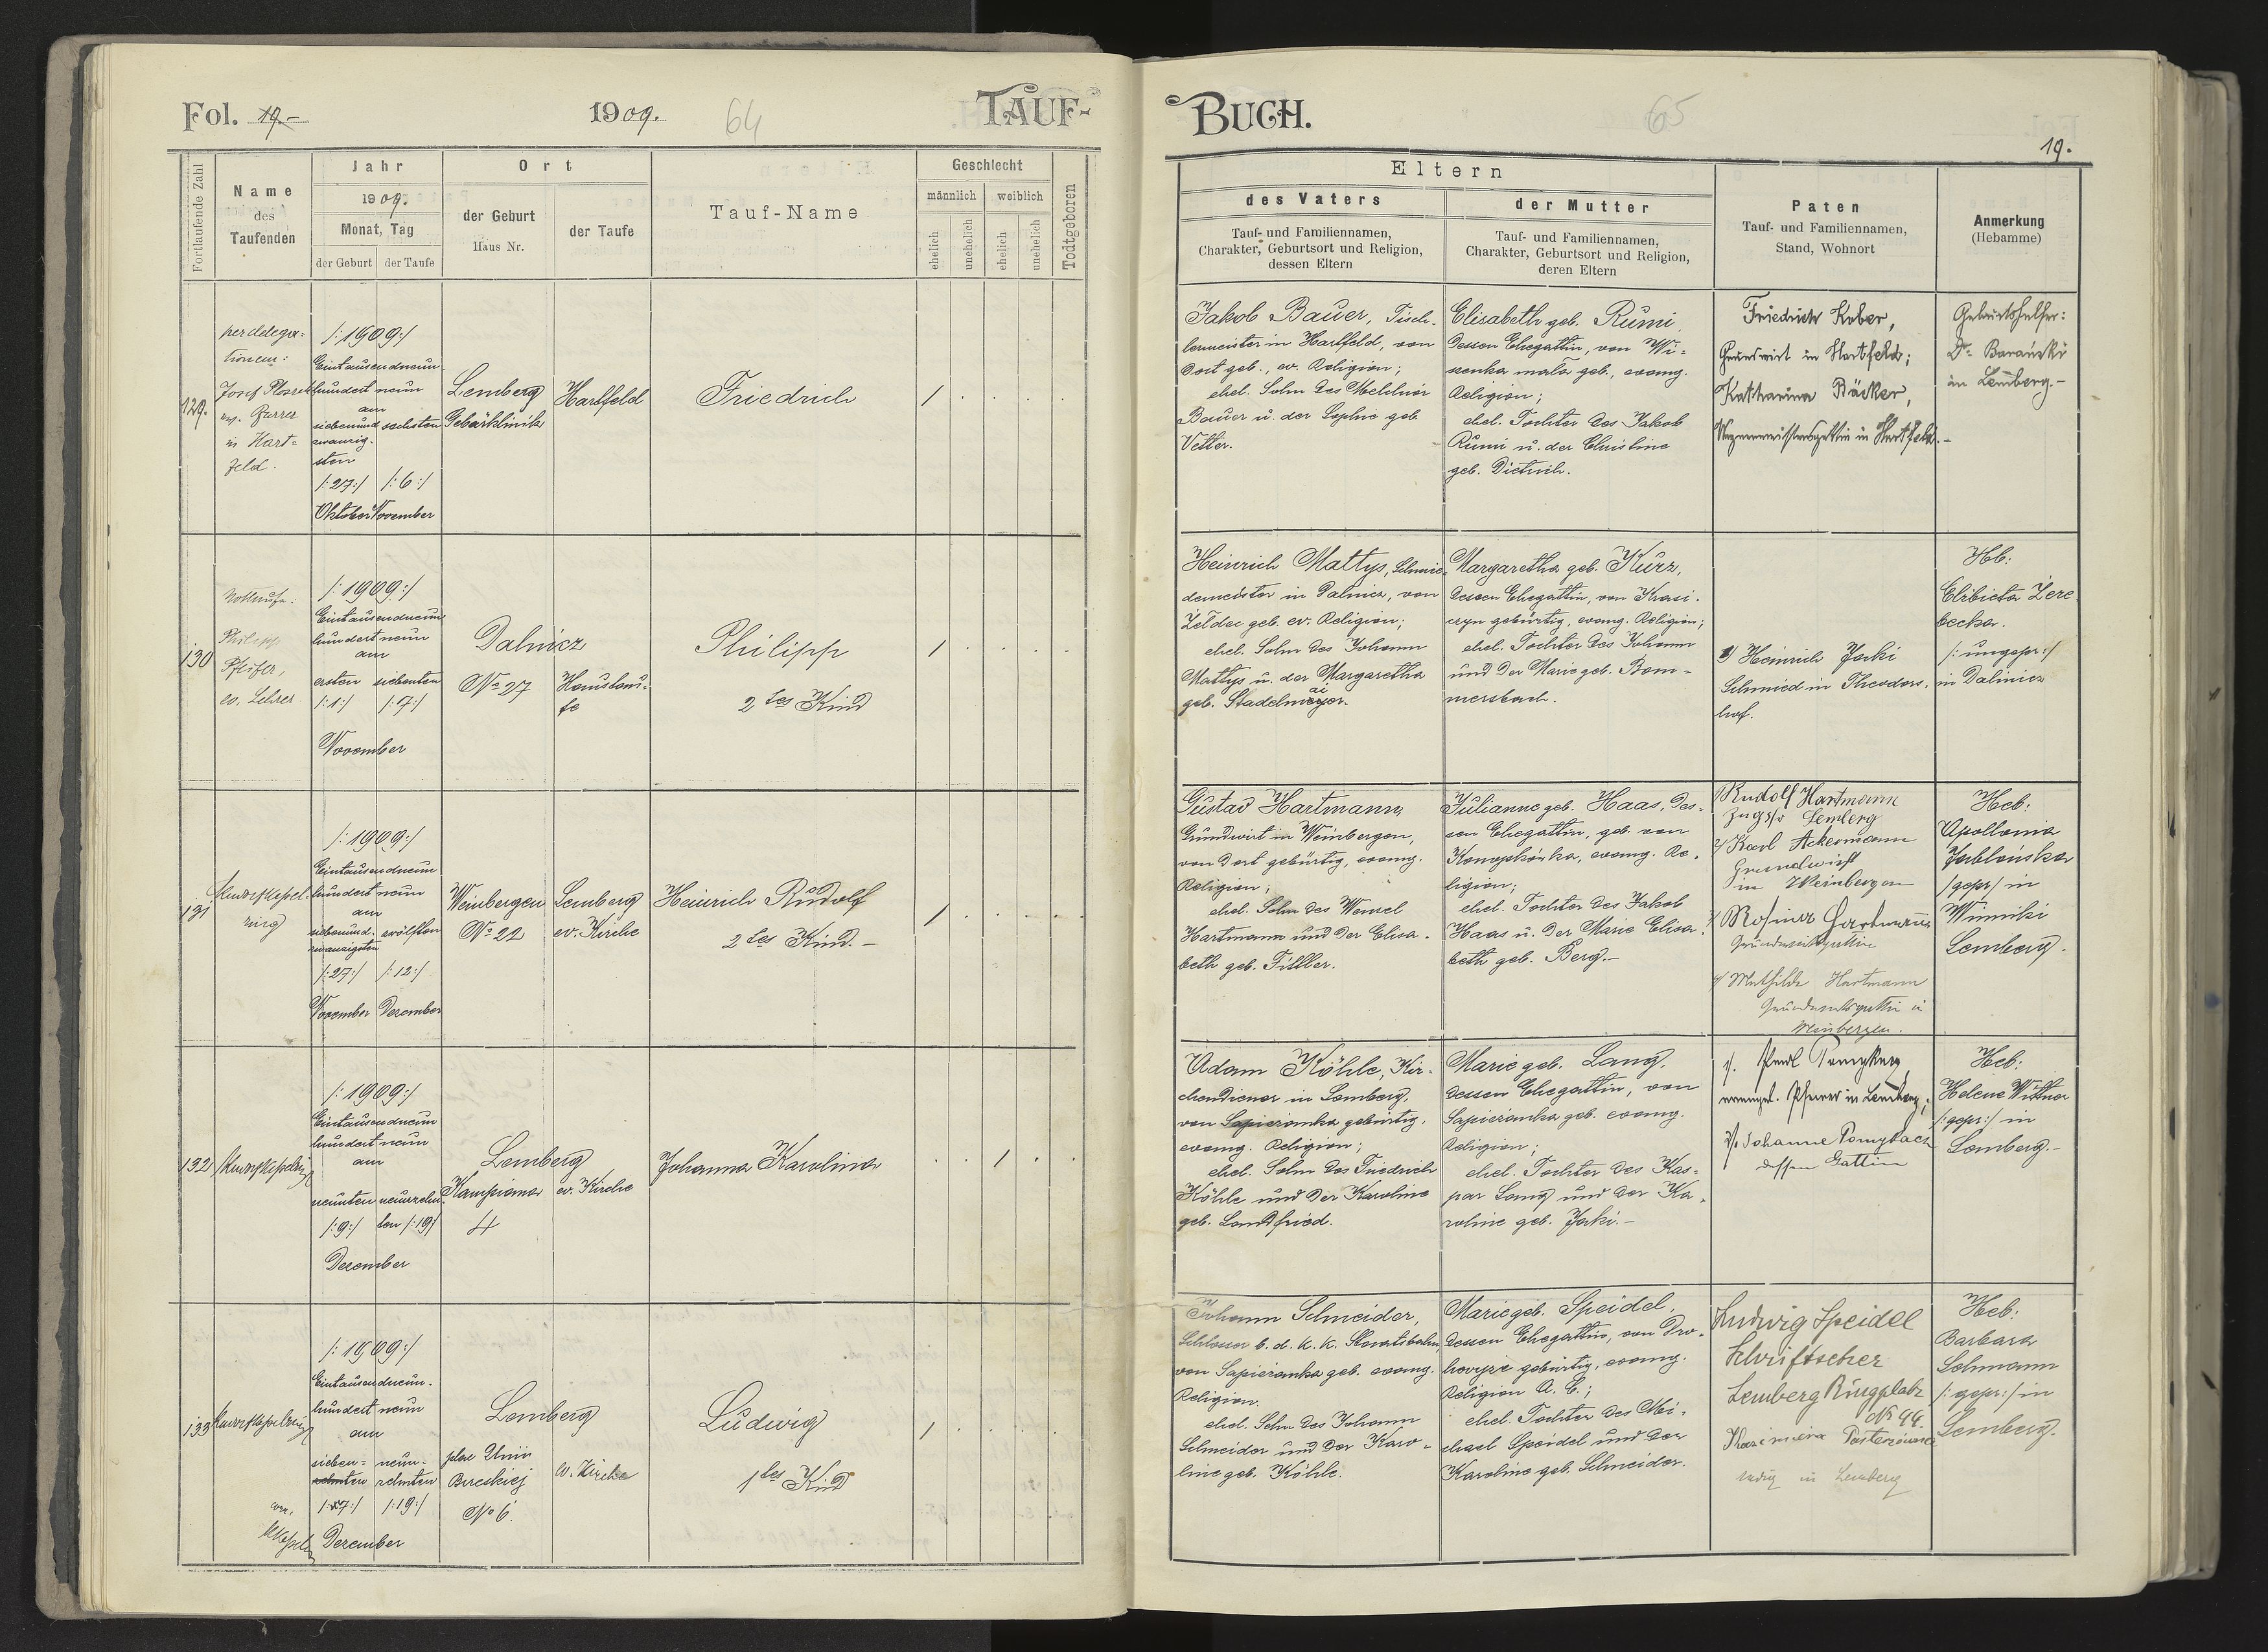 Fol. 19.-
1909.
64
TAUF-
Fortlaufende Zahl
Name
des
Taufenden
Jahr
1909.
Monat, Tag
der Geburt
der Taufe
Ort
der Geburt
Haus Nr.
der Taufe
Tauf-Name
Geschlecht
männlich
weiblich
ehelich
unehelich
ehelich
unehelich
Todtgeboren
129.
per delega-
tionem:
Josef
ev. Pfarrer
in Hart-
feld.
/:1909:/
Eintausendneun
hundert neun
am
siebenund
zwanzig-
sten
/:27:/
Oktober
sechsten
/:6:/
November
Lemberg
Gebärklinik
Hartfeld
Friedrich
1
130
Nottaufe:
Philipp
Pfeifer,
ev. Lehrer
/:1909:/
Eintausendneun
hundert neun
am
ersten siebenten
/:1:/ /:7:/
November
Dalnicz
No 27
Haustau-
fe
Philipp
2tes Kind
1
131
/:1909:/
Eintausendneun
hundert neun
am
siebenund-
zwanzigsten
zwölften
/:27:/ /:12:/
November Dezember
Weinbergen
No 22
Lemberg
ev. Kirche
Heinrich Rudolf
2tes Kind.-
1
132
/:1909:/
Eintausendneun
hundert neun
am
neunten neunzehn
/:9:/ ten /:19/
Dezember
Lemberg
Kampiana
4
ev. Kirche
Johanna Karolina
1
133
/:1909:/
Eintausendneun-
hundert neun
am
sieben- neun-
zehnten zehnten
/:17:/ /:19:/
Dezember
Lemberg
plac Unii
Brzeskiej
No 6.
ev. Kirche
Ludwig
1tes Kind
1
BUCH.
65
19.
Eltern
des Vaters
Tauf- und Familiennamen,
Charakter, Geburtsort und Religion,
dessen Eltern
der Mutter
Tauf- und Familiennamen,
Charakter, Geburtsort und Religion,
deren Eltern
Paten
Tauf- und Familiennamen,
Stand, Wohnort
Anmerkung
(Hebamme)
Jakob Bauer, Tisch-
lermeister in Hartfeld, von
dort geb., ev. Religion;
ehel. Sohn des Melchior
Bauer u. der Sophie geb.
Vetter.
Elisabeth geb. Rumi,
dessen Ehegattin, von Wi-
szenka mała geb., evang.
Religion;
ehel. Tochter des Jakob
Rumi u. der Christine
geb. Dietrich.
Friedrich Kober,
Grundwirt in Hartfeld;
Katharina Bäcker,
Wagnermeistersgattin in Hartfeld.-
Geburtshelfer:
Dr. Barański
in Lemberg.-
Heinrich Mattys, Schmie-
demeister in Dalnicz, von
Żełdec geb. ev. Religion;
ehel. Sohn des Johann
Mattys u. der Margaretha
geb. Stadelmayer.
Margaretha geb. Kurz,
dessen Ehegattin, von Krasi-
czyn gebürtig, evang. Religion;
ehel. Tochter des Johann
und der Marie geb. Bom-
mersbach.
1) Heinrich Jaki
Schmied in Theodors-
hof.
Heb:
Elżbieta Żere
becka.
/:ungepr:/
in Dalnicz
Gustav Hartmann
Grundwirt in Weinbergen,
von dort gebürtig, evang.
Religion;
ehel. Sohn des Wenzel
Hartmann und der Elisa-
beth geb. Tittler.
Julianne geb. Haas, des-
sen Ehegattin, geb. von
Konopkówka, evang. Re-
ligion;
ehel. Tochter des Jakob
Haas u. der Marie Elisa-
beth geb. Berg.-
1) Rudolf Hartmann
Lemberg
2) Karl Ackermann
Grundwirt
in Weinbergen
3) Rosina Hartmann
Grundwirtsgattin
4) Mathilde Hartmann
Grundwirtsgattin in
Weinbergen.
Heb:
Apollonia
Jabłońska
/gepr/ in
Winniki
Lemberg.
Adam Köhle, Kir-
chendiener in Lemberg,
von Sapieżanka gebürtig,
evang. Religion;
ehel. Sohn des Friedrich
Köhle und der Karoline
geb. Landfried.
Marie geb. Lang,
dessen Ehegattin, von
Sapieżanka geb. evang.
Religion;
ehel. Tochter des Kas-
par Lang und der Ka-
roline geb. Jaki.-
1). Paul
evangel. Pfarrer in Lemberg;
2) Johanne
dessen Gattin
Heb:
Helene Wittner
/:gepr:/ in
Lemberg.-
Johann Schneider,
Schlosser b. d. k. k. Staatsbahn,
von Sapieżanka geb. evang.
Religion.
ehel. Sohn des Johann
Schneider und der Karo-
line geb. Köhle.
Marie geb. Speidel,
dessen Ehegattin, von Dro-
howyże gebürtig, evang.
Religion A. C.;
ehel. Tochter des Mi-
chael Speidel und der
Karoline geb. Schneider.
Ludwig Speidel
Schriftsetzer
Lemberg Ringplatz
No 44.
Kazimiera
ledig in Lemberg
Heb:
Barbara
Lehmann
/:gepr:/ in
Lemberg.